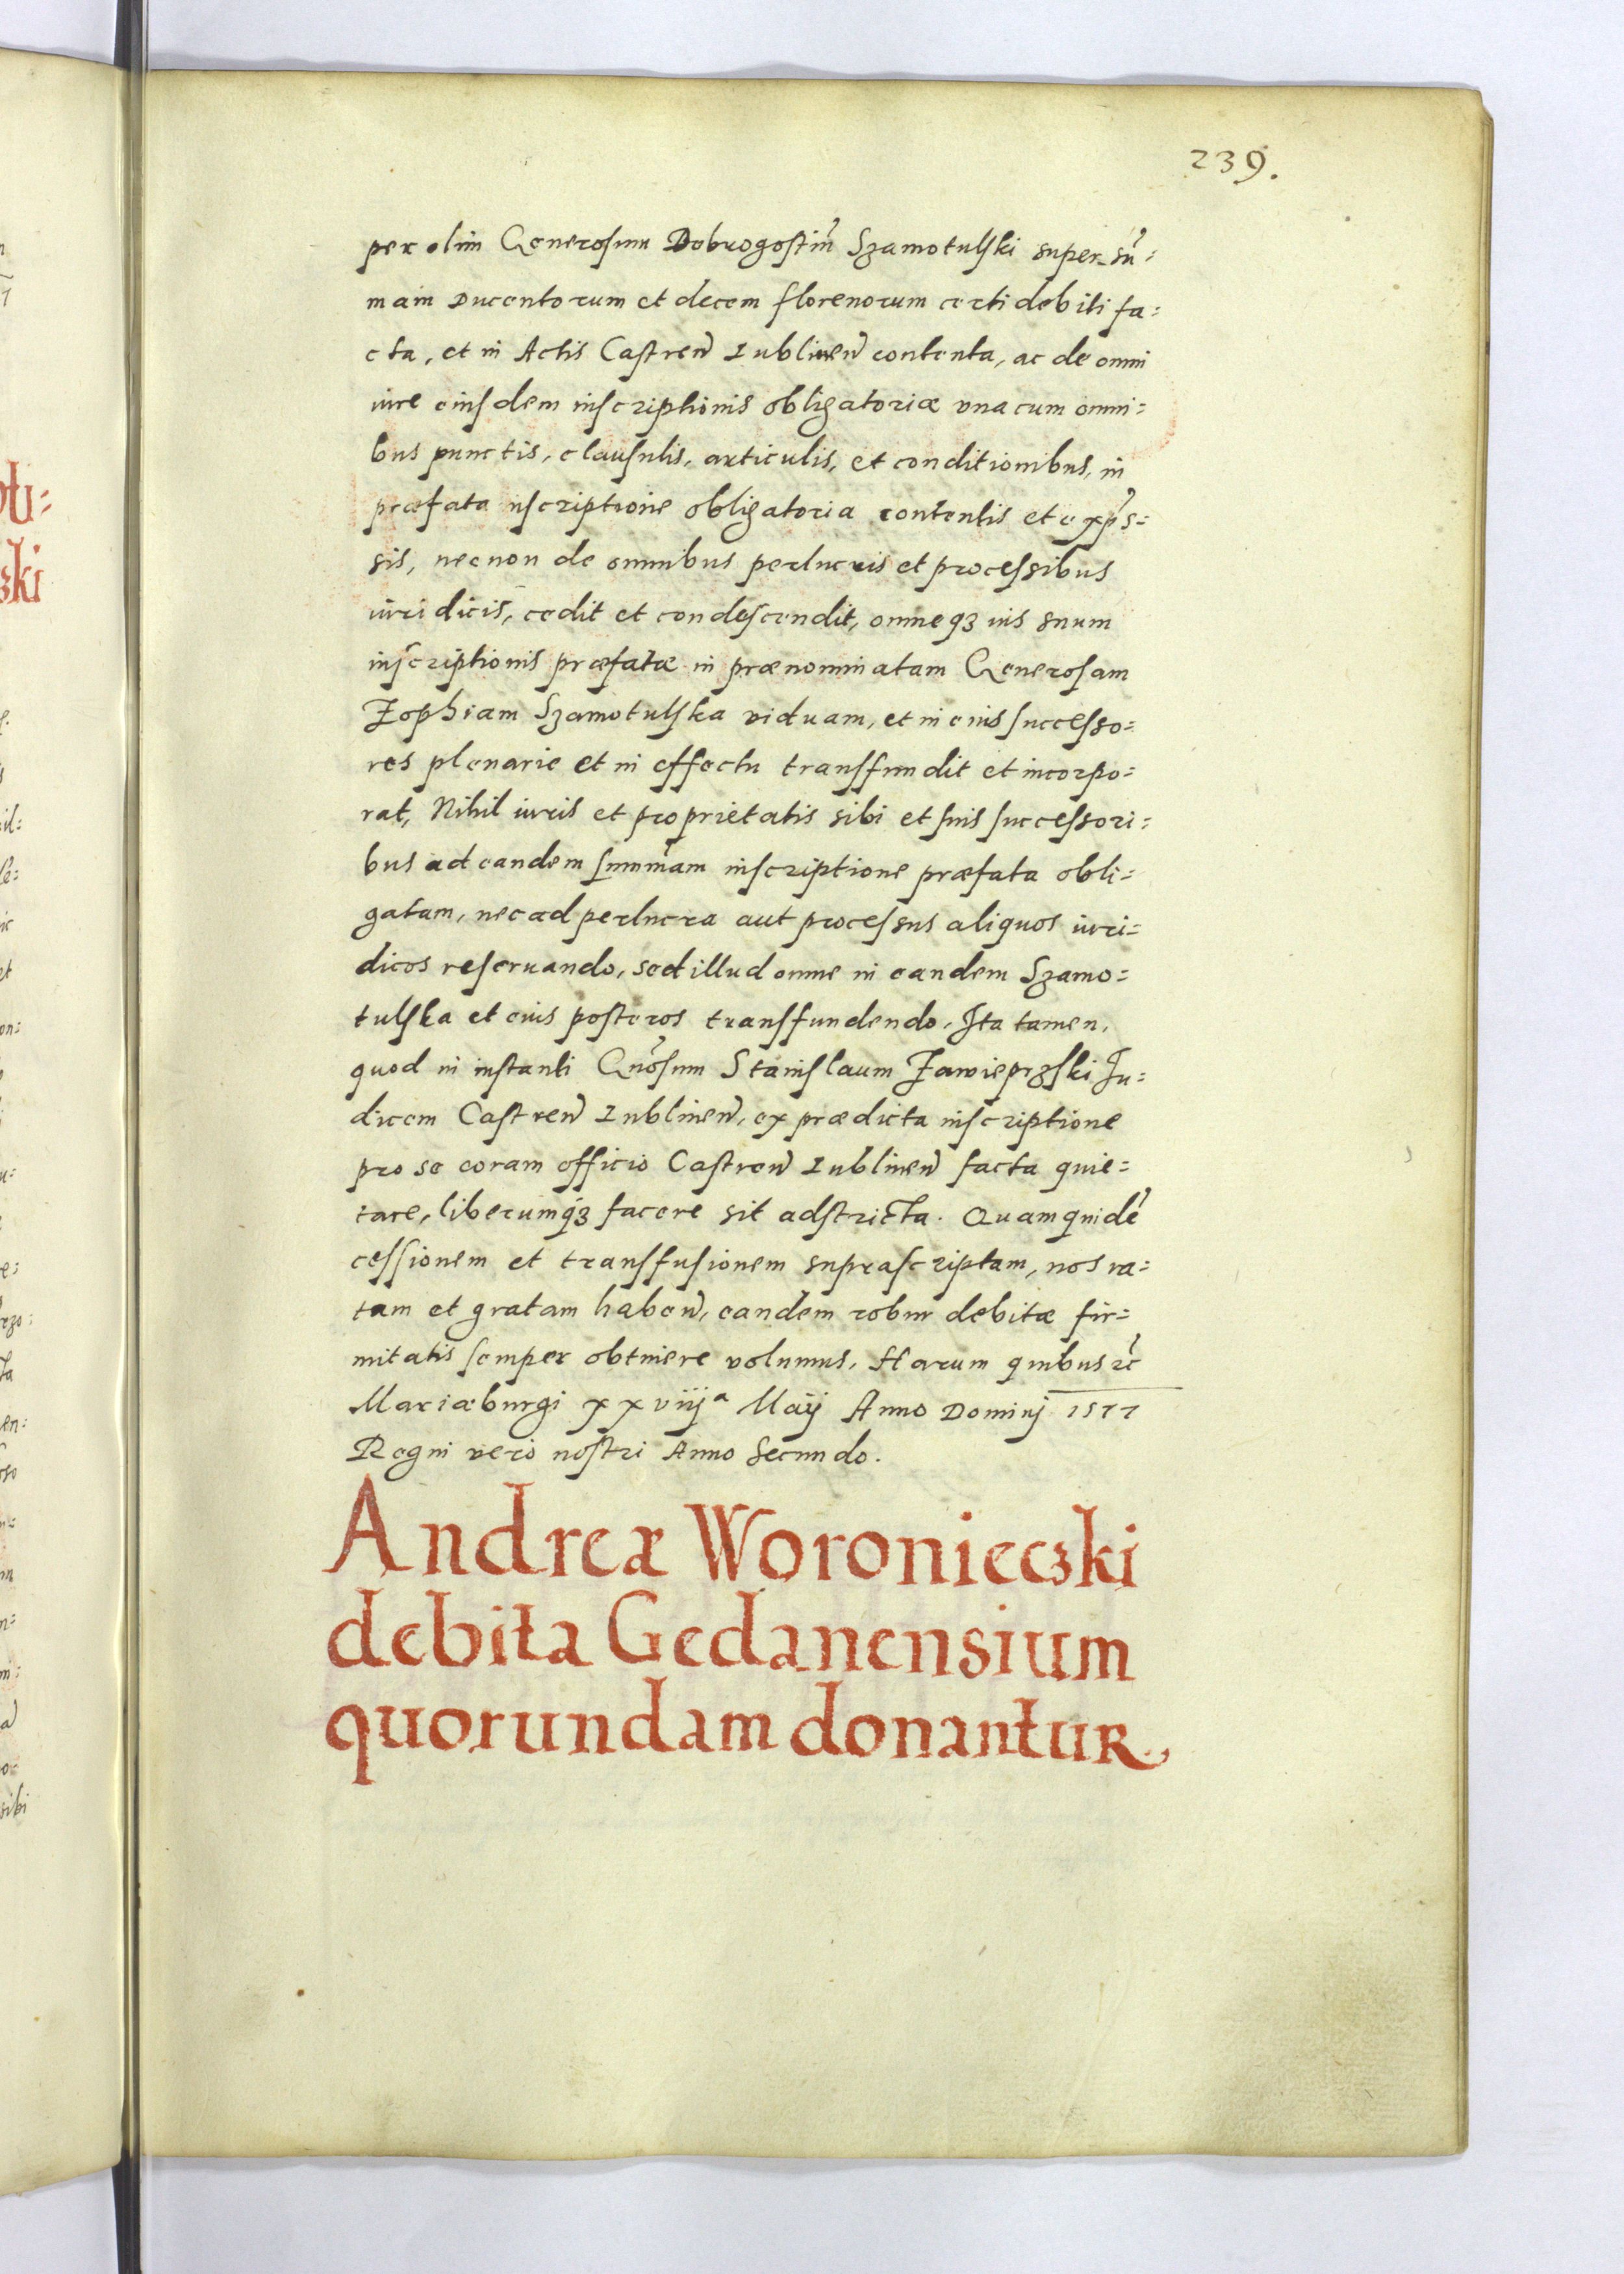 239.
per olim Generosum Dobrogostiu͂ Szamotulski super su͂=
mam Ducentorum et decem florenorum certi debiti fa=
cta, et in Actis Castren̄ Lublinen̄ contenta, ac de omni
iure eiusdem inscriptionis obligatoriæ vna cum omni=
bus punctis, clausulis, articulis, et conditionibus, in
præfata inscriptione obligatoria contentis et exp̄s=
sis, necnon de omnibus perlucris et processibus
iuridicis, cedit et condescendit, omneqꝫ ius suum
inscriptionis præfatæ in prænominatam Generosam
Zophiam Szamotulska viduam, et in eius successo=
res plenarie et in effectu transfundit et incorpo=
rat, Nihil iuris et proprietatis sibi et suis successori=
bus ad eandem summam inscriptione præfata obli=
gatam, nec ad perlucra aut processus aliquos iuri=
dicos reseruando, sed illud omne in eandem Szamo=
tulska et eius posteros transfundendo, Ita tamen,
quod in instanti Gn̄osum Stanislaum Zawieprzski Iu=
dicem Castren̄ Lublinen̄, ex prædicta inscriptione
pro se coram officio Castren̄ Lublinen̄ facta quie=
tare, liberumqꝫ facere sit adstricta. Quamquidē
cessionem et transfusionem suprascriptam, nos ra=
tam et gratam haben̄, eandem robur debitæ fir=
mitatis semper obtinere volumus, Harum quibus ꝛc̄
Mariæburgi xxviijᵃ Maij Anno Dominj 1577
Regni vero nostri Anno Secundo.
Andreæ Woronieczki
debita Gedanensium
quorundam donantur.